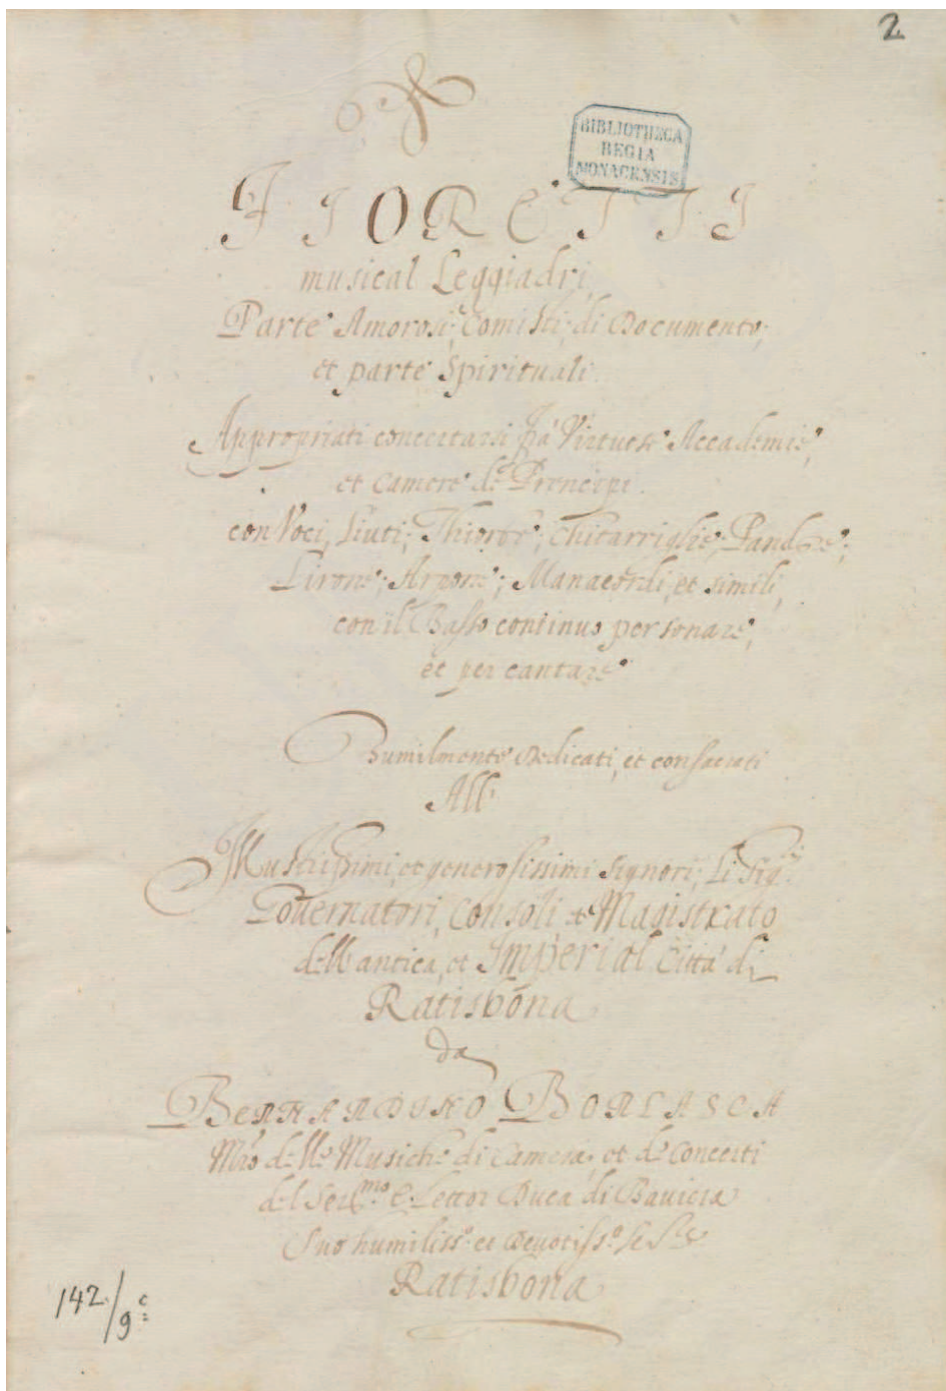 2
BIBLIOTHECA
REGIA
MONACENSIS
FIORETTI
musical Leggiadri,
Parte Amorosi; Comisti; di Documento;
et parte Spirituali.
Appropriati concertarsi frà Virtuose Accademie,
et Camere de Prencipi.
con Voci, Liuti; Thiorbe; Chitarriglie; Pandore;
Lirone; Arpone; Manacordi, et simili,
con il Basso continuo per sonare,
et per cantare
Humilmente Dedicati, et consacrati
All'
Illustrissimi, et generosissimi Signori, Li Sig.ri
Governatori, Consoli et Magistrato
dell antica, et Imperial Città di
Ratisbona
da
BERNARDINO BORLASCA
Mro delle Musiche di Camera, et de Concerti
del Ser.mo Elettor Duca di Baviera
Suo humiliss.o et Devotiss.o
Ratisbona
142/9c